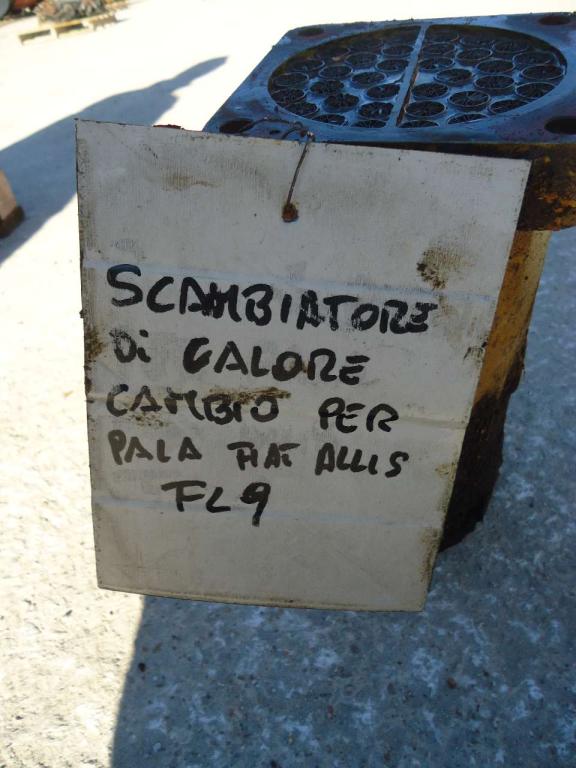 SCAMBIATORE
Di CALORE
CAMBIO PER
PALA FIAT ALLIS
FL9